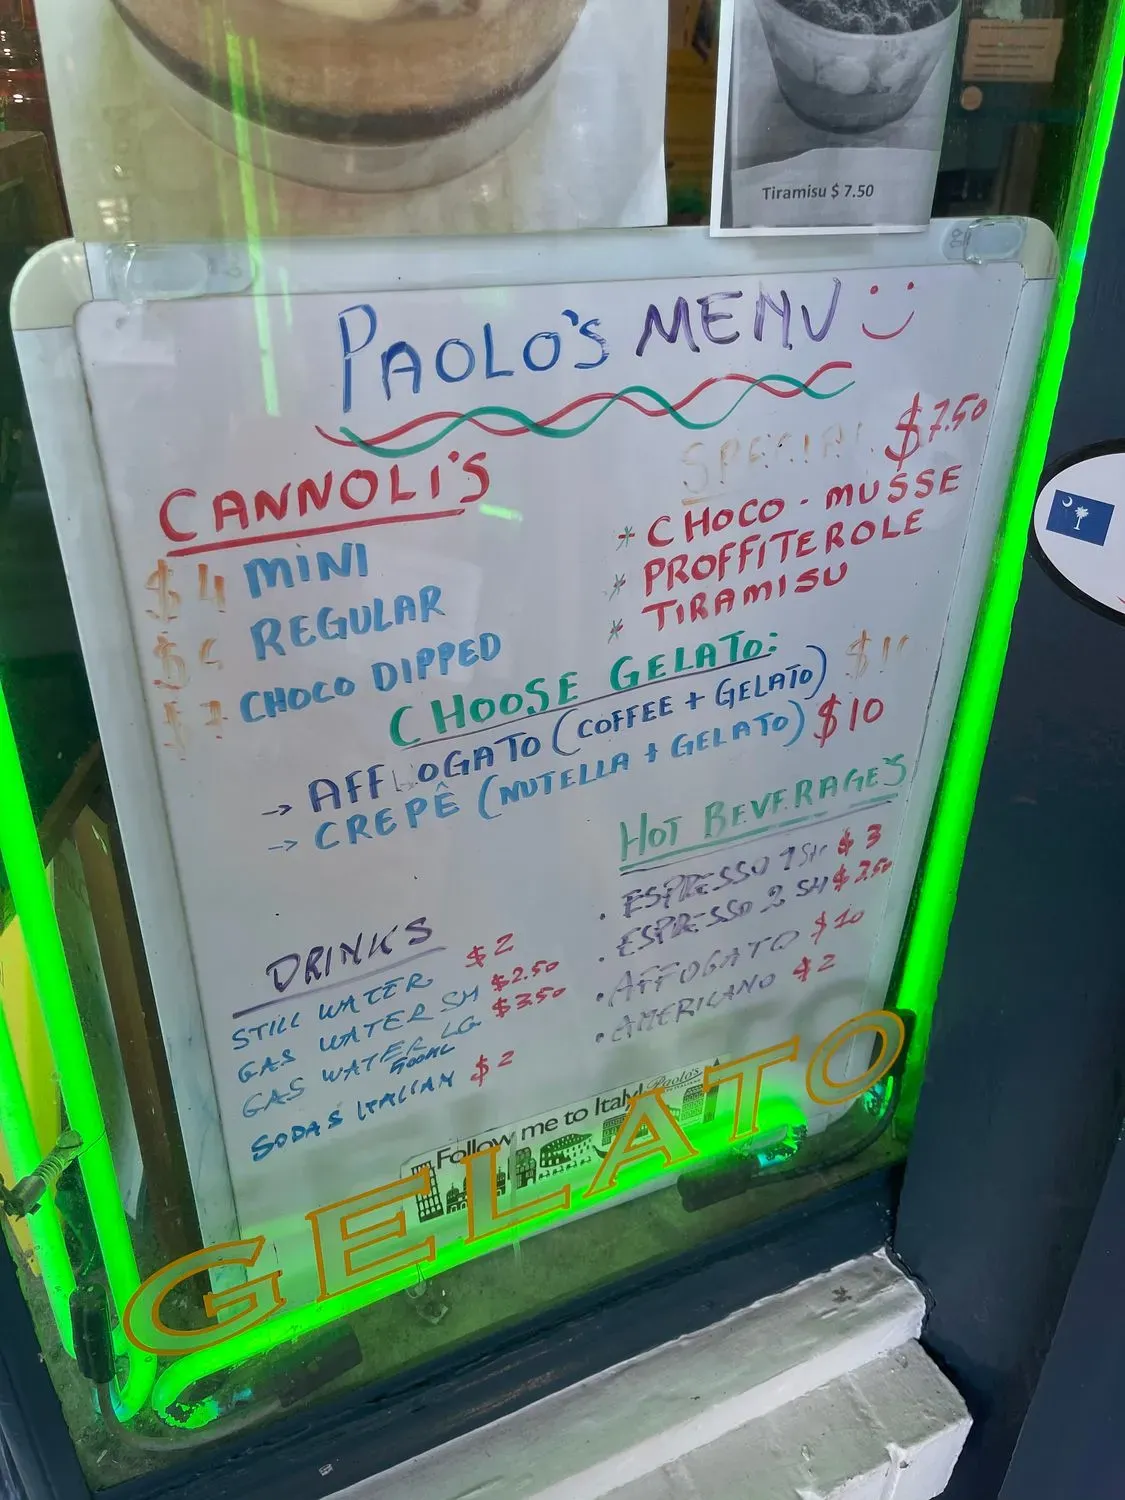 Tiramisu $ 7.50
PAOLO'S MENU
CANNOLI'S
$4 MINI
REGULAR
CHOCO DIPPED
SPECIAL $7.50
* CHOCO - MUSSE
* PROFFITEROLE
* TIRAMISU
CHOOSE GELATO:
→ AFFOGATO (COFFEE + GELATO)
→ CREPÊ (NUTELLA + GELATO) $10
HOT BEVERAGE'S
• ESPRESSO 1 SH $3
• ESPRESSO 2 SH $3.50
• AFFOGATO $10
• AMERICANO $2
DRINKS
STILL WATER $2
GAS WATER SM $2.50
GAS WATER LG $3.50
500ML
SODAS ITALIAN $2
Follow me to Italy! Paolo's
GELATO